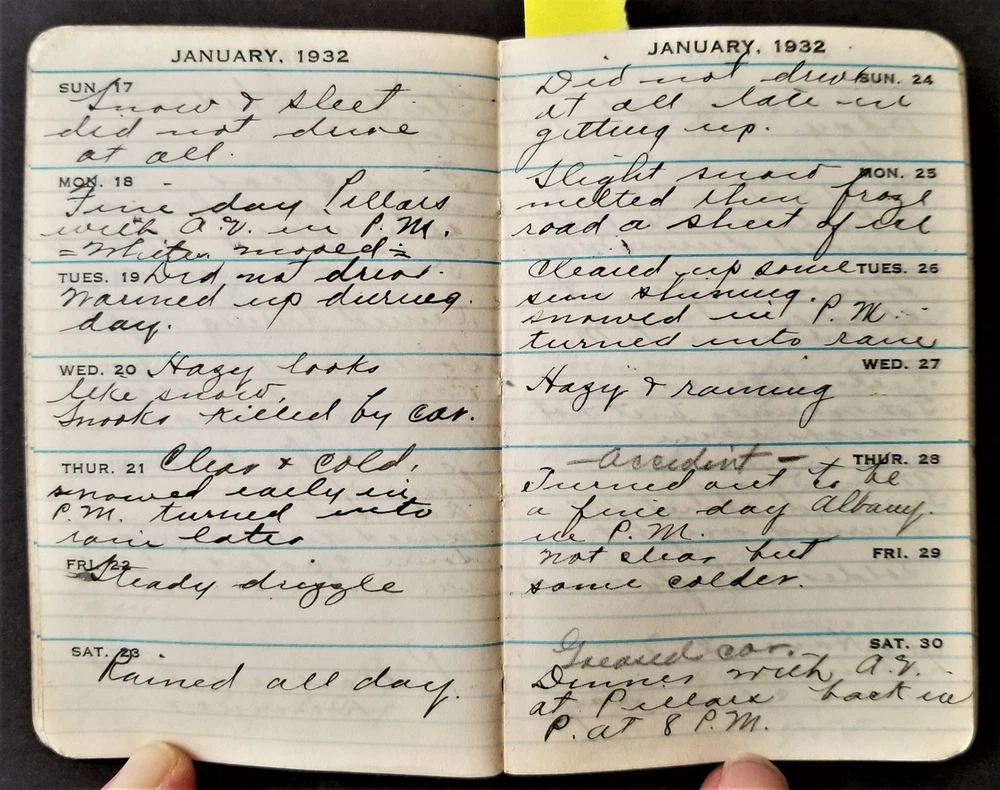 JANUARY, 1932
SUN. 17
Snow & sleet
did not drive
at all.
MON. 18
Fine day Pillars
with A.V. in P.M.
= White moved =
TUES. 19 Did not drive.
Warmed up during
day.
WED. 20 Hazy looks
like snow.
Snooks killed by car.
THUR. 21 Clear & cold,
snowed early in
P.M. turned into
rain later
FRI. 22
Steady drizzle
SAT. 23
Rained all day.
JANUARY, 1932
Did not drive SUN. 24
at all late in
getting up.
Slight snow MON. 25
melted then froze
road a sheet of ice
Cleared up some TUES. 26
sun shining.
snowed in P.M.
turned into rain
WED. 27
Hazy & raining
- Accident - THUR. 28
Turned out to be
a fine day Albany.
in P.M.
not clear but FRI. 29
some colder.
Greased car. SAT. 30
Dinner with A.V.
at Pillars back in
P. at 8 P.M.